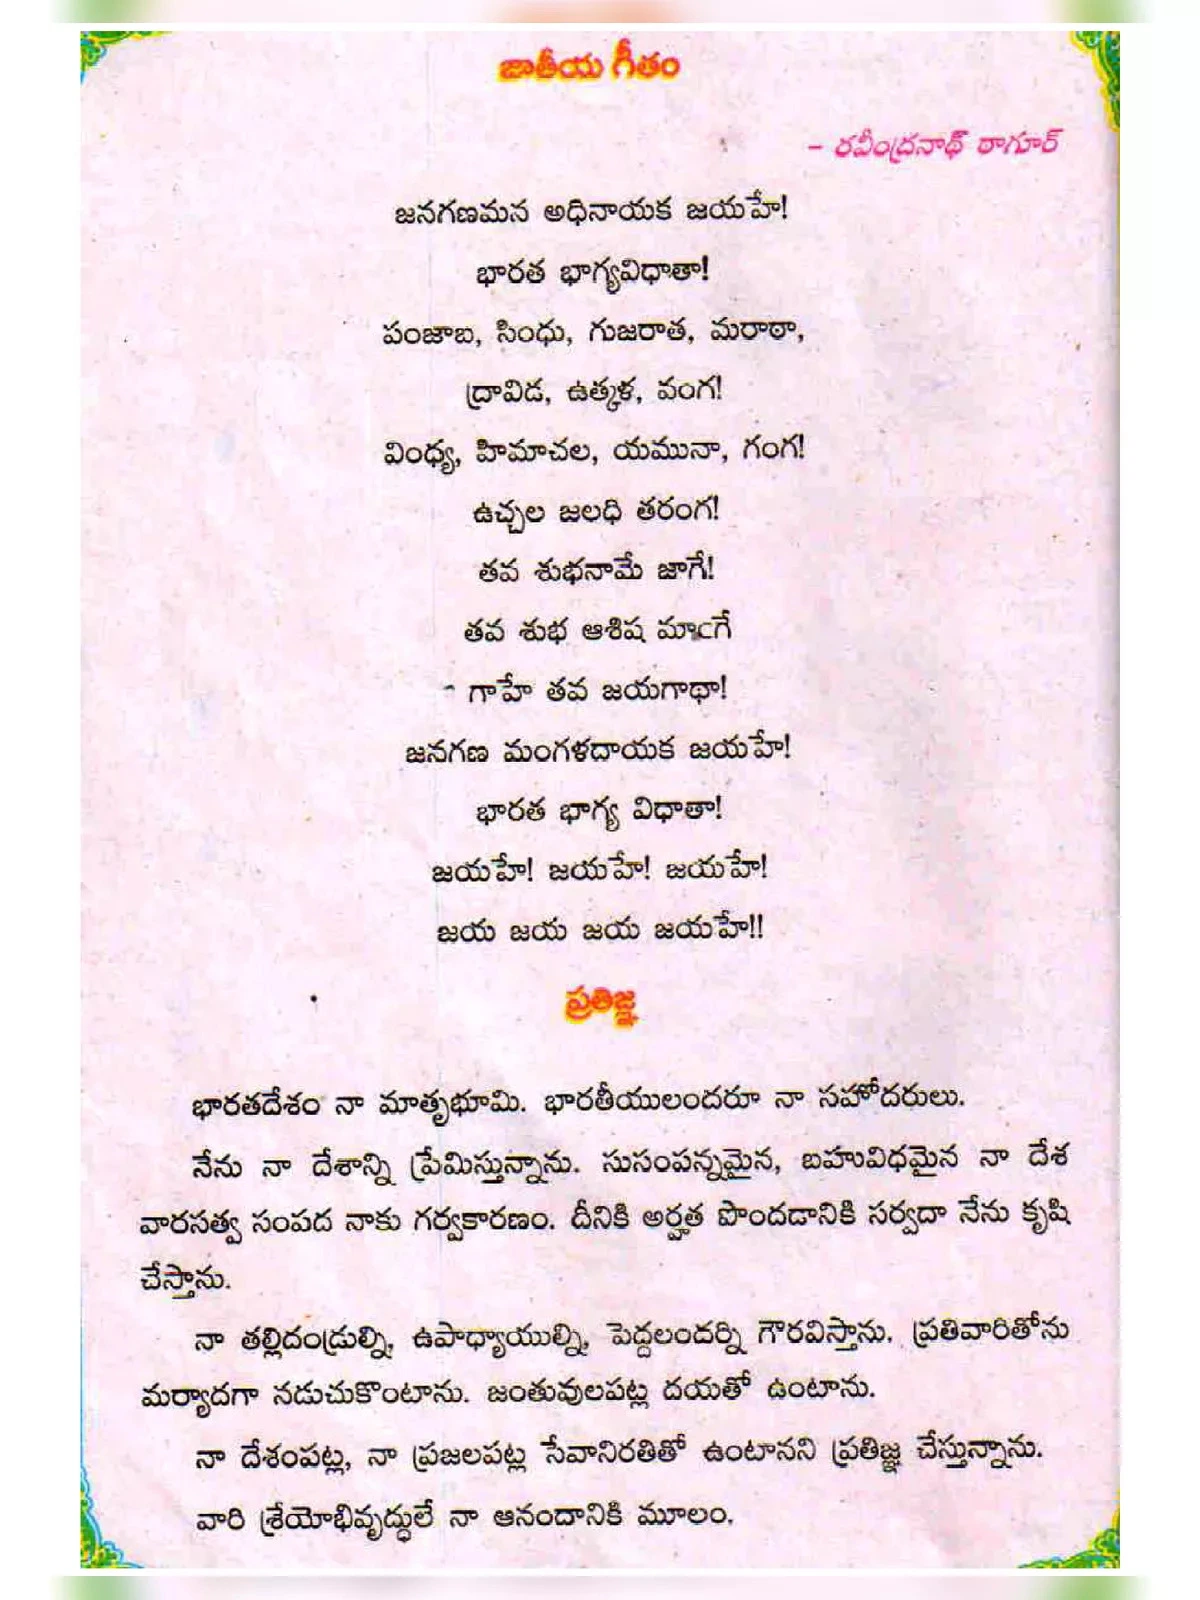 జాతీయ గీతం
- రవీంద్రనాథ్ ఠాగూర్
జనగణమన అధినాయక జయహే!
భారత భాగ్యవిధాతా!
పంజాబ, సింధు, గుజరాత, మరాఠా,
ద్రావిడ, ఉత్కళ, వంగ!
వింధ్య, హిమాచల, యమునా, గంగ!
ఉచ్చల జలధి తరంగ!
తవ శుభనామే జాగే!
తవ శుభ ఆశిష మాఁగే
గాహే తవ జయగాథా!
జనగణ మంగళదాయక జయహే!
భారత భాగ్య విధాతా!
జయహే! జయహే! జయహే!
జయ జయ జయ జయహే!!
ప్రతిజ్ఞ
భారతదేశం నా మాతృభూమి. భారతీయులందరూ నా సహోదరులు.
నేను నా దేశాన్ని ప్రేమిస్తున్నాను. సుసంపన్నమైన, బహువిధమైన నా దేశ
వారసత్వ సంపద నాకు గర్వకారణం. దీనికి అర్హత పొందడానికి సర్వదా నేను కృషి
చేస్తాను.
నా తల్లిదండ్రుల్ని, ఉపాధ్యాయుల్ని, పెద్దలందర్ని గౌరవిస్తాను. ప్రతివారితోను
మర్యాదగా నడుచుకొంటాను. జంతువులపట్ల దయతో ఉంటాను.
నా దేశంపట్ల, నా ప్రజలపట్ల సేవానిరతితో ఉంటానని ప్రతిజ్ఞ చేస్తున్నాను.
వారి శ్రేయోభివృద్ధులే నా ఆనందానికి మూలం.